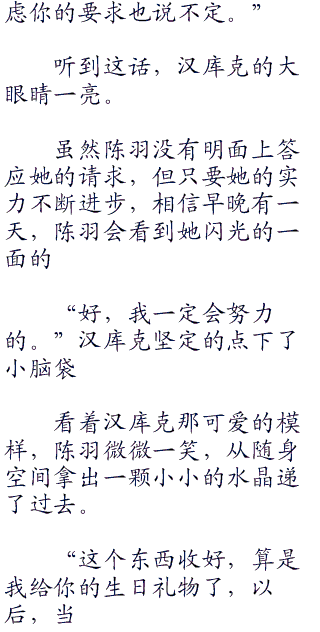 虑你的要求也说不定。”
听到这话，汉库克的大
眼睛一亮。
虽然陈羽没有明面上答
应她的请求，但只要她的实
力不断进步，相信早晚有一
天，陈羽会看到她闪光的一
面的
“好，我一定会努力
的。”汉库克坚定的点下了
小脑袋
看着汉库克那可爱的模
样，陈羽微微一笑，从随身
空间拿出一颗小小的水晶递
了过去。
“这个东西收好，算是
我给你的生日礼物了，以
后，当